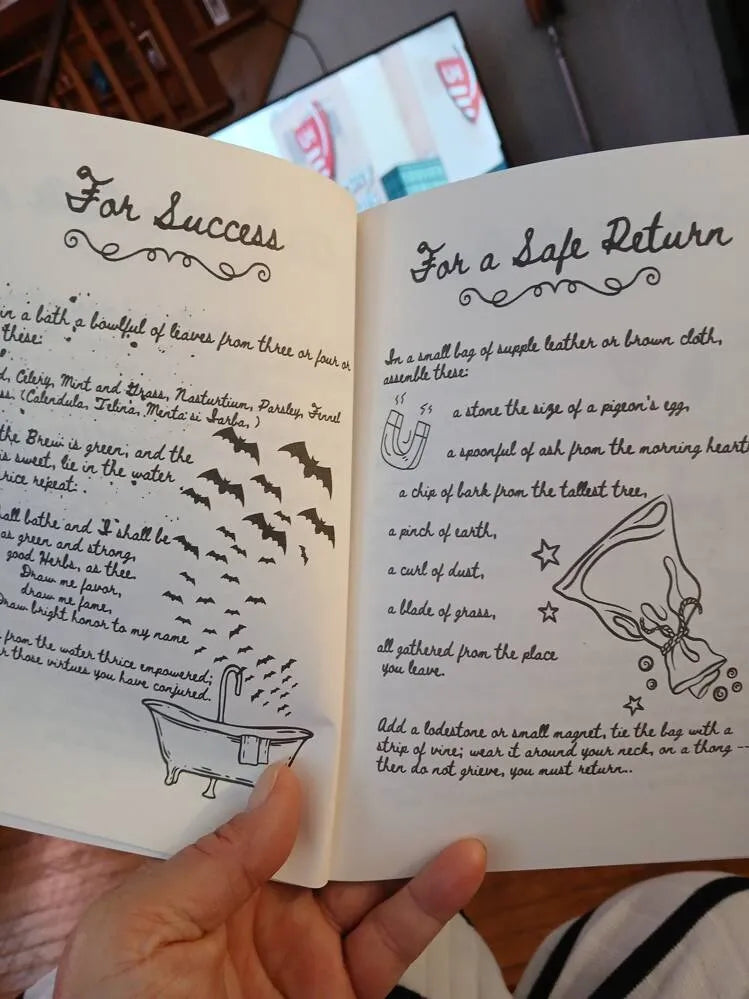 For Success
in a bath a bowlful of leaves from three or four or
these:
Celery, Mint and Grass, Nasturtium, Parsley, Finnel
(Calendula, Telina, Menta si Iarba, )
the Brew is green, and the
is sweet, lie in the water
repeat:
bathe and I shall be
as green and strong,
good Herbs, as thee.
Draw me favor,
draw me fame,
Draw bright honor to my name
from the water thrice empowered;
those virtues you have conjured.
For a Safe Return
In a small bag of supple leather or brown cloth,
assemble these:
a stone the size of a pigeon's egg,
a spoonful of ash from the morning hearth
a chip of bark from the tallest tree,
a pinch of earth,
a curl of dust,
a blade of grass,
all gathered from the place
you leave.
Add a lodestone or small magnet, tie the bag with a
strip of vine; wear it around your neck, on a thong --
then do not grieve, you must return..